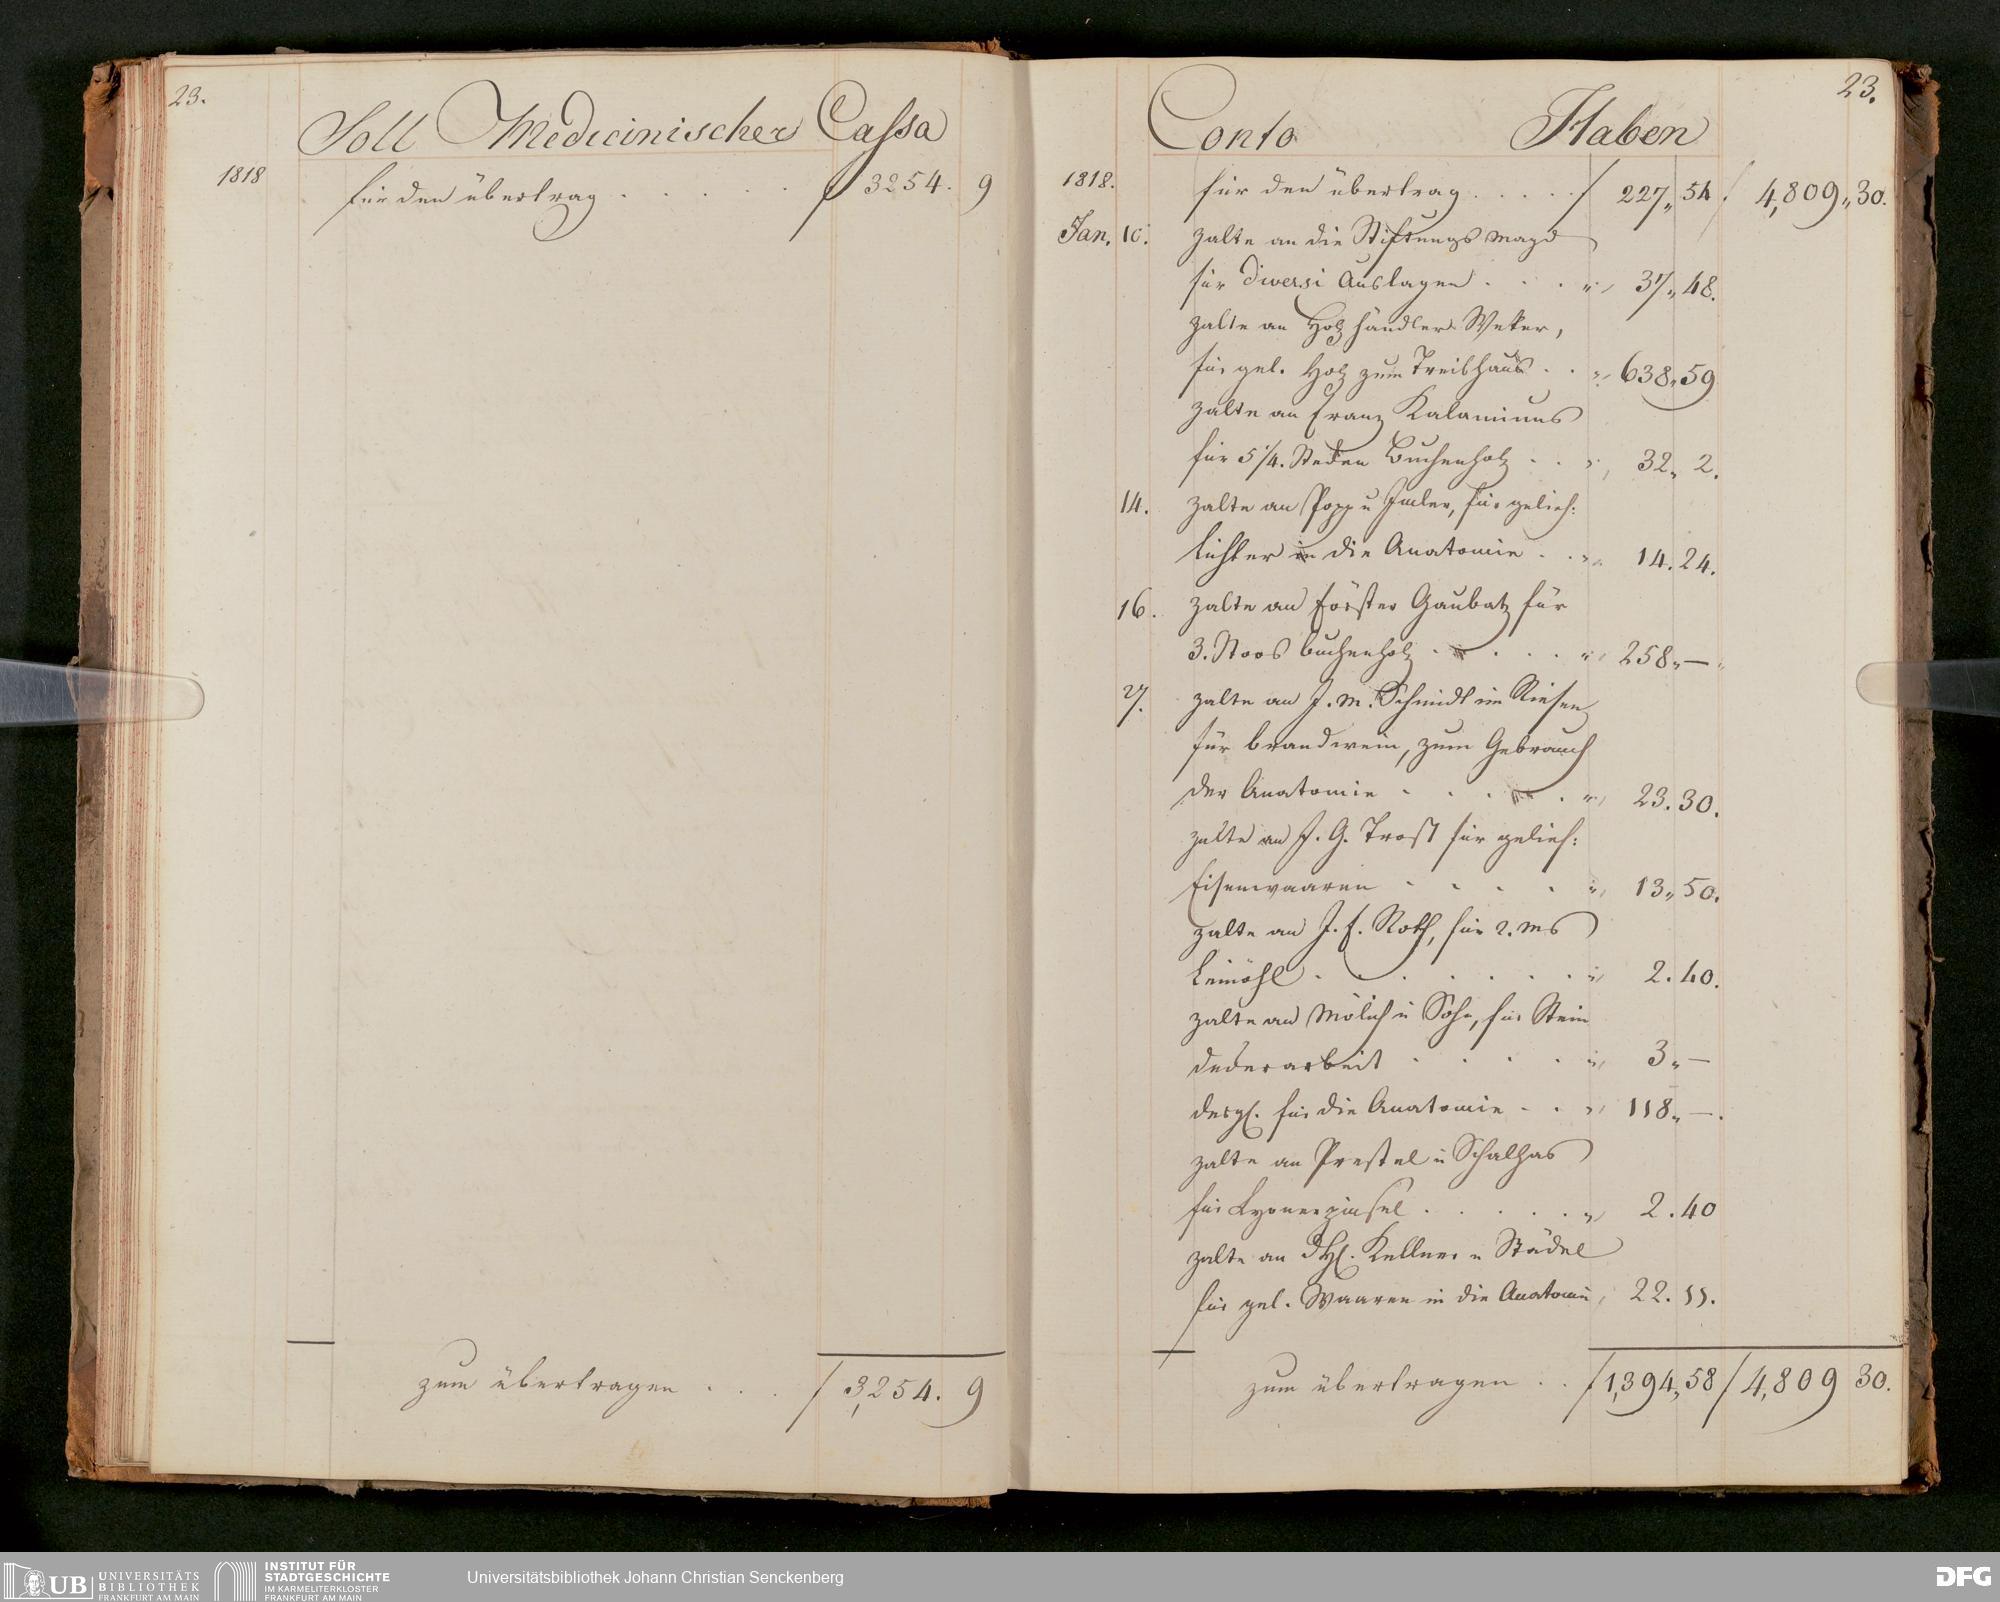 23.
Soll Medicinischer Cassa
1818 für den übertrag . . . . . f 3254. 9
zum übertragen . . . f 3,254. 9
23.
Conto Haben
1818. für den übertrag . . . . f 227,, 54 f 4,809,, 30.
Jan. 10. zalte an die Stiftungs Magd
für Diversi Auslagen . . . " 37,, 48.
zalte an Holzhändler Weker,
für gel. Holz zum Treibhaus . . " 638,, 59
zalte an Franz Kalaminus
für 5 1/4. Steken Buchenholz . . . " 32,, 2.
14. zalte an Popp u Imler, für gelief:
Lichter in die Anatomie . . " 14. 24.
16. zalte an Förster Gaubatz für
3. Stoos buchenholz . . . . " 258,, —
27. zalte an J. M. Schmidt im Riesen
für brandwein, zum Gebrauch
der Anatomie . . . . " 23. 30.
zalte an J. G. Trost für gelief:
Eisenwaaren . . . . " 13,, 50.
zalte an J. F. Roth, für 2. Ms
Leinöhl . . . . . . . " 2. 40.
zalte an Mölich u Sohn, für Stein
dekerarbeit . . . . " 3,, —
desgl. für die Anatomie . . " 118,, —.
zalte an Prestel u Schalhas
für Lyonerpinsel . . . . . " 2. 40
zalte an HH. Kellner u Städel
für gel. Waaren in die Anatomie, 22. 11.
zum übertragen . . f 1,394,, 58 f 4,809 30.
UB UNIVERSITÄTS
BIBLIOTHEK
FRANKFURT AM MAIN
INSTITUT FÜR
STADTGESCHICHTE
IM KARMELITERKLOSTER
FRANKFURT AM MAIN
Universitätsbibliothek Johann Christian Senckenberg
DFG